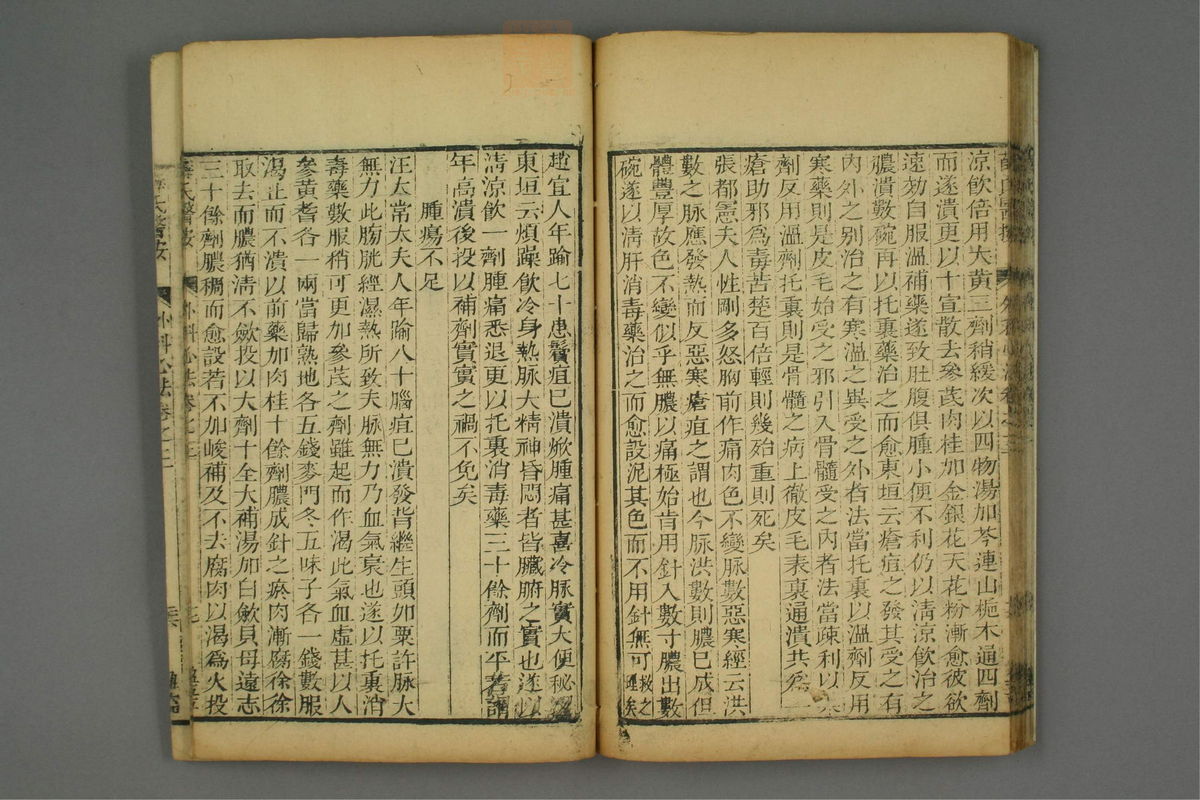 涼飲倍用大黃三劑稍緩次以四物湯加芩連山梔木通四劑
而遂潰更以十宣散去參芪肉桂加金銀花天花粉漸愈彼欲
速効自服溫補藥遂致肚腹俱腫小便不利仍以清涼飲治之
膿潰數碗再以托裏藥治之而愈東垣云瘡疽之發其受之有
內外之別治之有寒溫之異受之外者法當托裏以溫劑反用
寒藥則是皮毛始受之邪引入骨髓受之內者法當疎利以
劑反用溫劑托裏則是骨髓之病上徹皮毛表裏通潰共為一
瘡助邪爲毒苦楚百倍輕則幾殆重則死矣
張都憲夫人性剛多怒胸前作痛肉色不變脉數惡寒經云洪
數之脉應發熱而反惡寒瘡疽之謂也今脉洪數則膿已成但
體豐厚故色不變似乎無膿以痛極始肯用針入數寸膿出數
碗遂以清肝消毒藥治之而愈設泥其色而不用針無可救之理矣
趙宜人年踰七十患鬢疽已潰焮腫痛甚喜冷脉實大便秘澀
東垣云煩躁飲冷身熱脉大精神昏悶者皆臟腑之實也遂以
清涼飲一劑腫痛悉退更以托裏消毒藥三十餘劑而平若謂
年高潰後投以補劑實實之禍不免矣
腫瘍不足
汪太常太夫人年踰八十腦疽已潰發背繼生頭如粟許脉大
無力此膀胱經濕熱所致夫脉無力乃血氣衰也遂以托裏消
毒藥數服稍可更加參芪之劑雖起而作渴此氣血虛甚以人
參黃耆各一兩當歸熟地各五錢麥門冬五味子各一錢數服
渴止而不潰以前藥加肉桂十餘劑膿成針之瘀肉漸腐徐徐
取去而膿猶清不歛投以大劑十全大補湯加白歛貝母遠志
三十餘劑膿稠而愈設若不加峻補及不去腐肉以渴爲火投
薛氏醫按 外科心法卷之三